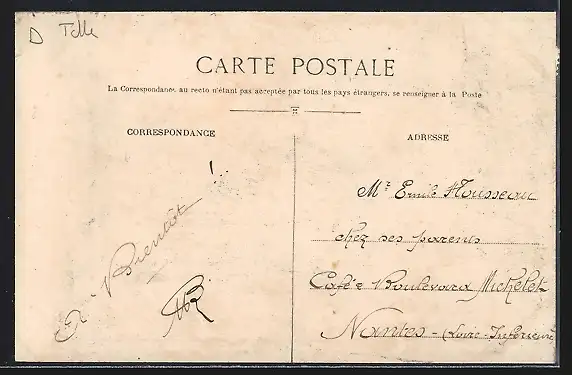 D Tolle
CARTE POSTALE
La Correspondance au recto n'étant pas acceptée par tous les pays étrangers, se renseigner à la Poste
CORRESPONDANCE
ADRESSE
A Bientôt !..
Mr Emile Housseau
chez ses parents
Café Boulevard Michelet
Nantes - (Loire-Inférieure)